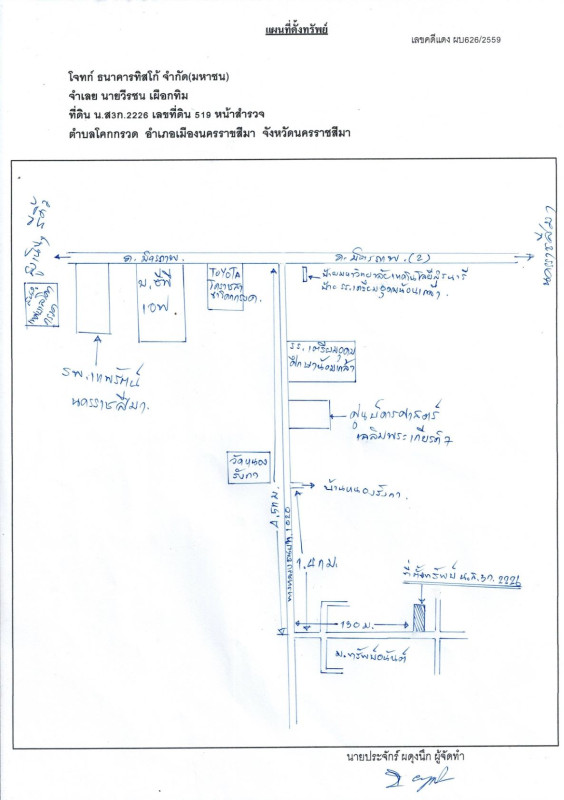 แผนที่ตั้งทรัพย์
เลขคดีแดง ผบ626/2559
โจทก์ ธนาคารทิสโก้ จำกัด(มหาชน)
จำเลย นายวีรชน เผือกทิม
ที่ดิน น.ส3ก.2226 เลขที่ดิน 519 หน้าสำรวจ
ตำบลโคกกรวด อำเภอเมืองนครราชสีมา จังหวัดนครราชสีมา
นครราชสีมา
ถ.มิตรภาพ
ถ.มิตรภาพ (2)
TOYOTA
บ.ซีพี
เอฟ.
ป้ายมหาวิทยาลัยเทคโนโลยีสุรนารี
ป้าย รร.เตรียมอุดมน้อมเกล้า
รพ.เทพรัตน์
นครราชสีมา.
รร.เตรียมอุดม
ศึกษาน้อมเกล้า
เฉลิมพระเกียรติ 7
วัดหนอง
รังกา
บ้านหนองรังกา.
4.5 กม.
1.4 กม.
ที่ตั้งทรัพย์ น.ส.3ก. 2226
130 ม.
ม.ทรัพย์อนันต์
นายประจักร์ ผดุงนึก ผู้จัดทำ